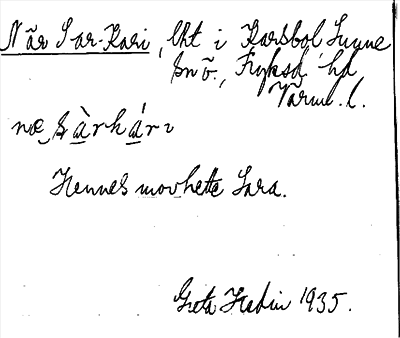 När Sar-Kari, lht i Karsbol Sunne
sn ö., Fryksd. hd
Värml. l.
næ, sàrkári
Hennes mor hette Sara.
Greta Hedin 1935.